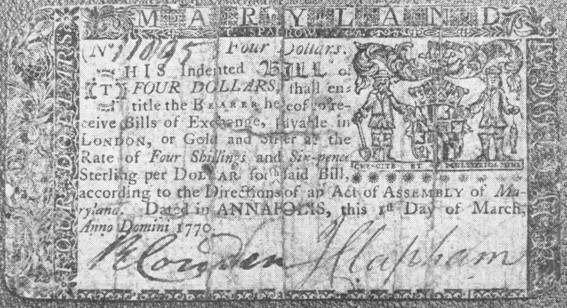 MARYLAND
T. SPARROW
No 11095 Four Dollars.
THIS Indented BILL of
FOUR DOLLARS, shall en-
title the BEARER hereof to re-
ceive Bills of Exchange, payable in
LONDON, or Gold and Silver at the
Rate of Four Shillings and Six-pence
Sterling per DOLLAR for the said Bill,
according to the Directions of an Act of ASSEMBLY of Ma-
ryland. Dated in ANNAPOLIS, this 1st Day of March,
Anno Domini 1770.
J Clapham
FOUR DOLLARS
FOUR DOLLARS